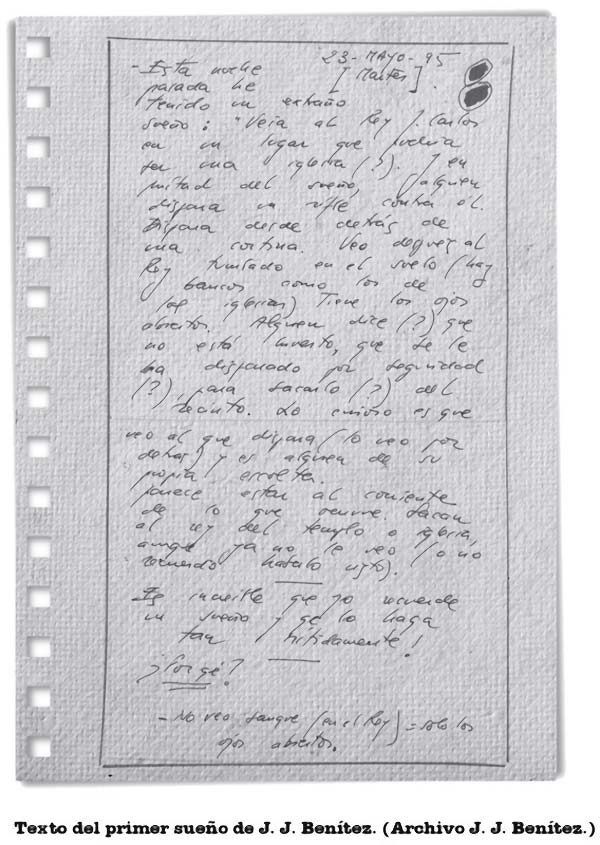 23-MAYO-95
- Esta noche [Martes].
pasada he
tenido un extraño
sueño: "Veía al Rey J. Carlos
en un lugar que podría
ser una iglesia (?). Y en
mitad del sueño, alguien
dispara un rifle contra él.
Dispara desde detrás de
una cortina. Veo después al
Rey tumbado en el suelo (hay
bancos como los de
las iglesias) Tiene los ojos
abiertos. Alguien dice (?) que
no está muerto, que se le
ha disparado por seguridad
(?), para sacarlo (?) del
recinto. Lo curioso es que
veo al que dispara (lo veo por
detrás) y es alguien de su
propia escolta.
parece estar al corriente
de lo que ocurre. Sacan
al rey del templo o iglesia,
aunque ya no le veo (o no
recuerdo haberlo visto).
Es increíble que yo recuerde
un sueño y qe lo haga
tan nítidamente!
¿Por qé?
- No veo sangre (en el Rey) = solo los
ojos abiertos.
Texto del primer sueño de J. J. Benítez. (Archivo J. J. Benítez.)